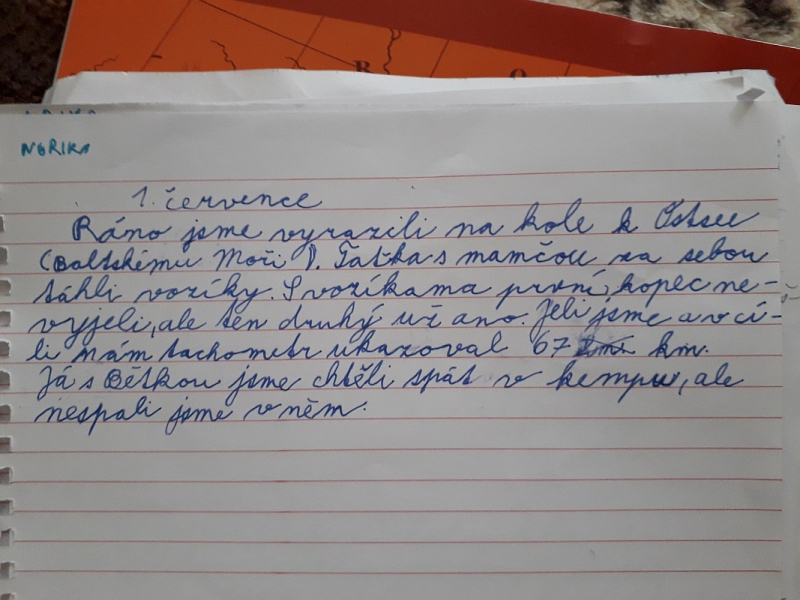 R O
NORIKA
1. července
Ráno jsme vyrazili na kole k Ostsee
(Baltskému Moři). Taťka s mamčou za sebou
táhli vozíky. S vozíkama první kopec ne-
vyjeli, ale ten druhý už ano. Jeli jsme a v cí-
li nám tachometr ukazoval 67 km.
Já s Bětkou jsme chtěli spát v kempu, ale
nespali jsme v něm.